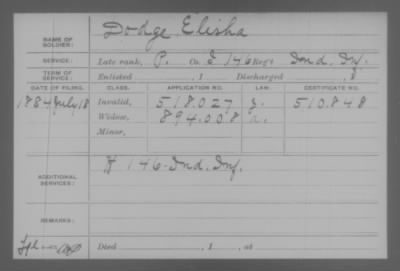 NAME OF SOLDIER: Dodge, Elisha
SERVICE: Late rank, P. Co. E 146 Reg't Ind. Inf.
TERM OF SERVICE: Enlisted , 1 Discharged , 1
DATE OF FILING. CLASS. APPLICATION NO. LAW. CERTIFICATE NO.
1884 July 18 Invalid, 518.027 510.848
Widow, 894.008
Minor,
ADDITIONAL SERVICES: H 146 Ind. Inf.
REMARKS:
Died , 1 , at